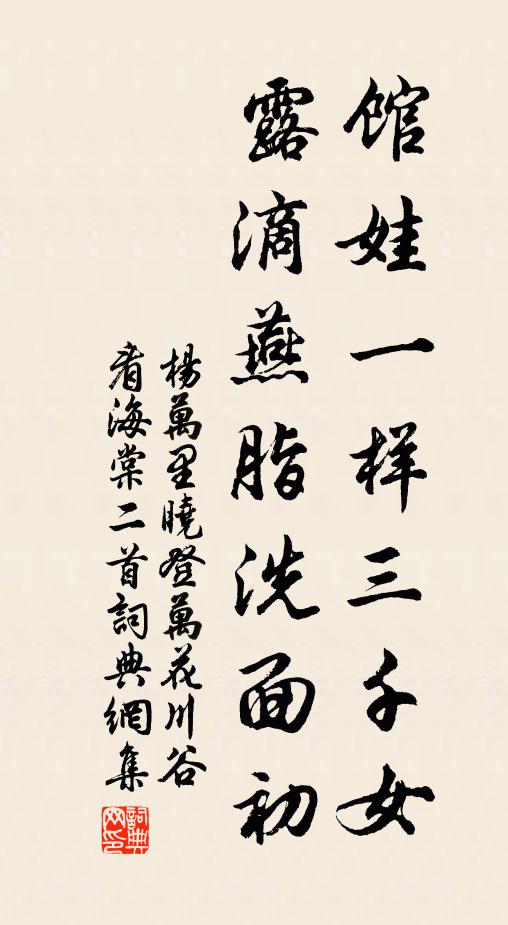 馆娃一样三千女
露滴燕脂洗面初
楊萬里曉登萬花川谷
看海棠二首詞典網集
詞典網印